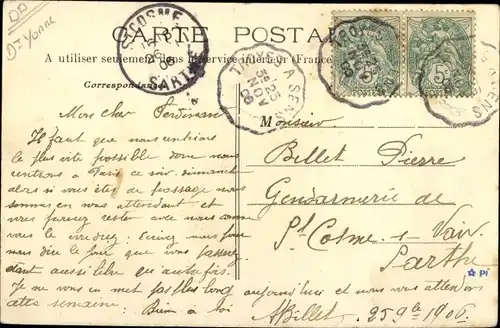 D
Dt Yonne
CARTE POSTALE
A utiliser seulement dans le service intérieur (France
Correspondance
ST COSME
06
SARTHE
TROYES A SENS
25
NOV
06
TROYES
06
SENS
5
5
Mon cher Ferdinan
Il faut que nous entrions
le plus vite possible donc nous
rentrons à Paris ce soir, dimanche
alors si vous êtes de passage nous
sommes en vous attendant et
vous pouvez rester avec nous comme
vous le voudrez: Ecrivez nous pour
nous dire le jour que vous passerez
étant aussi libre que autrefois.
Je ne vous en met pas plus long aujourd'hui et nous vous attendons
cette semaine: Bien à toi
ABillet. 25 9bre 1906.
Monsieur
Billet Pierre
Gendarmerie de
St Cosme s Vair
Sarthe
PI